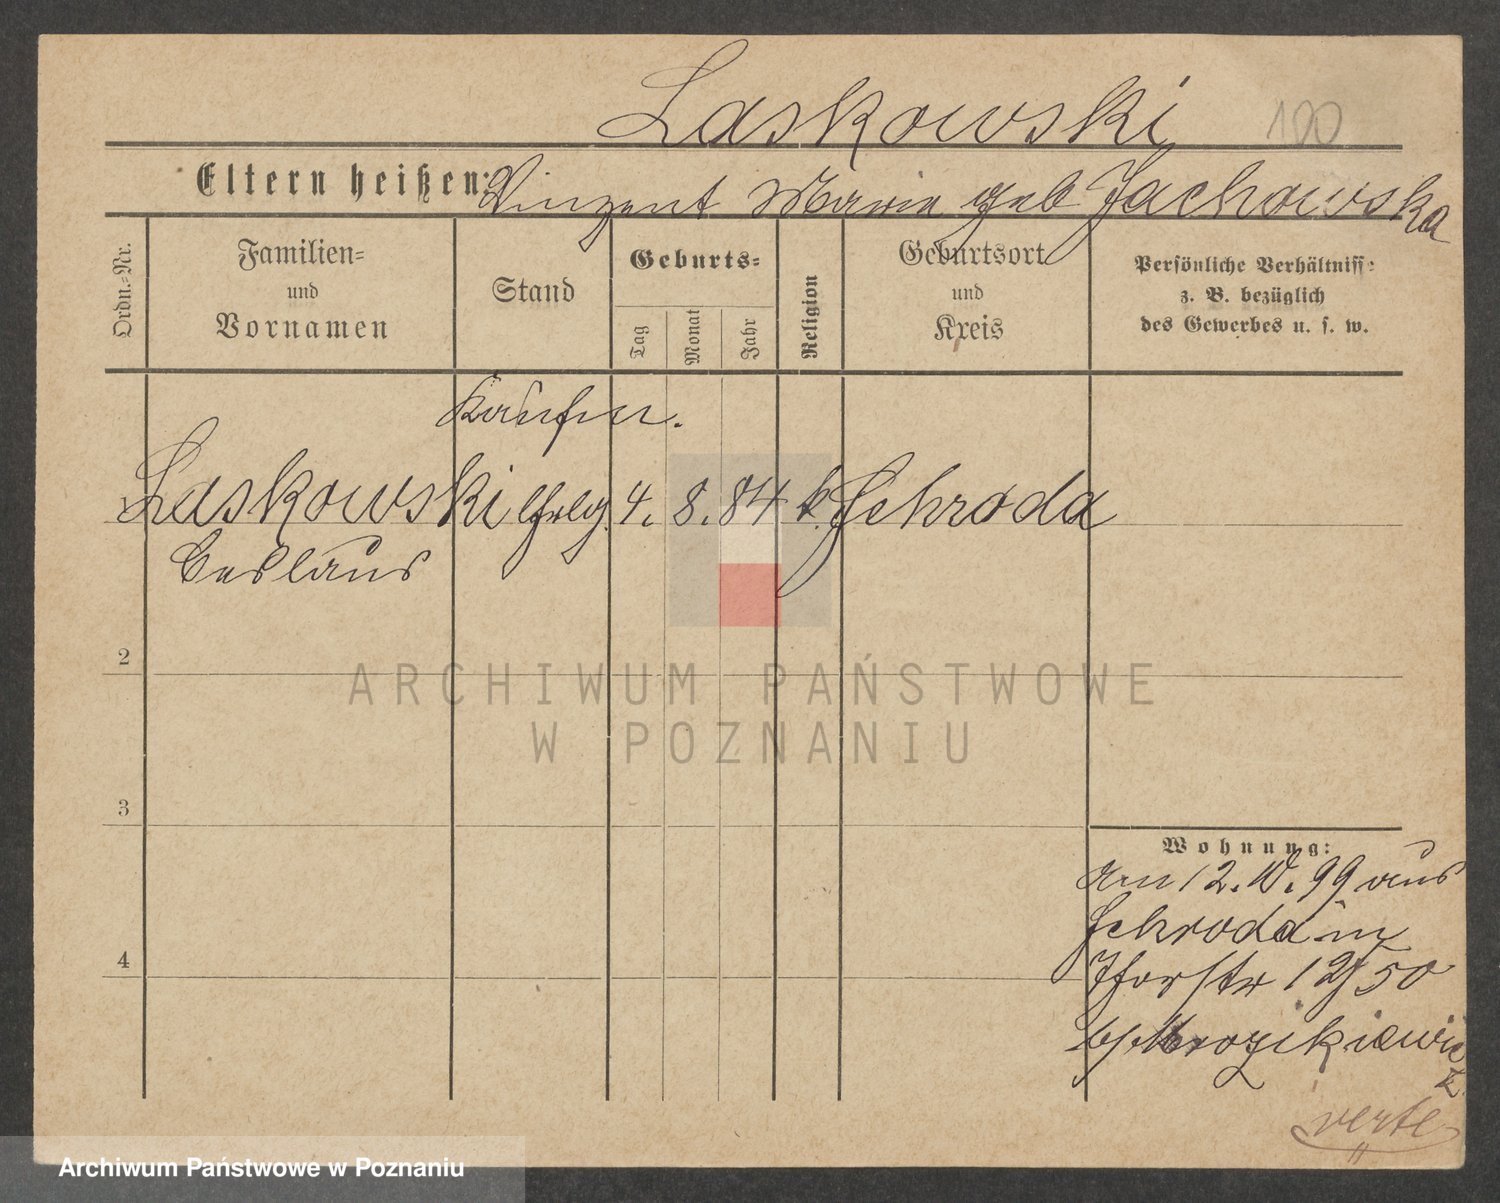 Laskowski 100
Eltern heißen: Vinzent Marie geb Jachowska
Ordn.=Nr.
Familien=
und
Vornamen
Stand
Geburts=
Tag
Monat
Jahr
Religion
Geburtsort
und
Kreis
Persönliche Verhältniss=
z. B. bezüglich
des Gewerbes u. s. w.
Kaufm.
Laskowski 4. 8. 84 k. Schroda
Ceslaus
2
3
4
Wohnung:
am 12. IV. 99 aus
Schroda in
12/50
b/ Mrozikiewicz
verte
ARCHIWUM PAŃSTWOWE
W POZNANIU
Archiwum Państwowe w Poznaniu